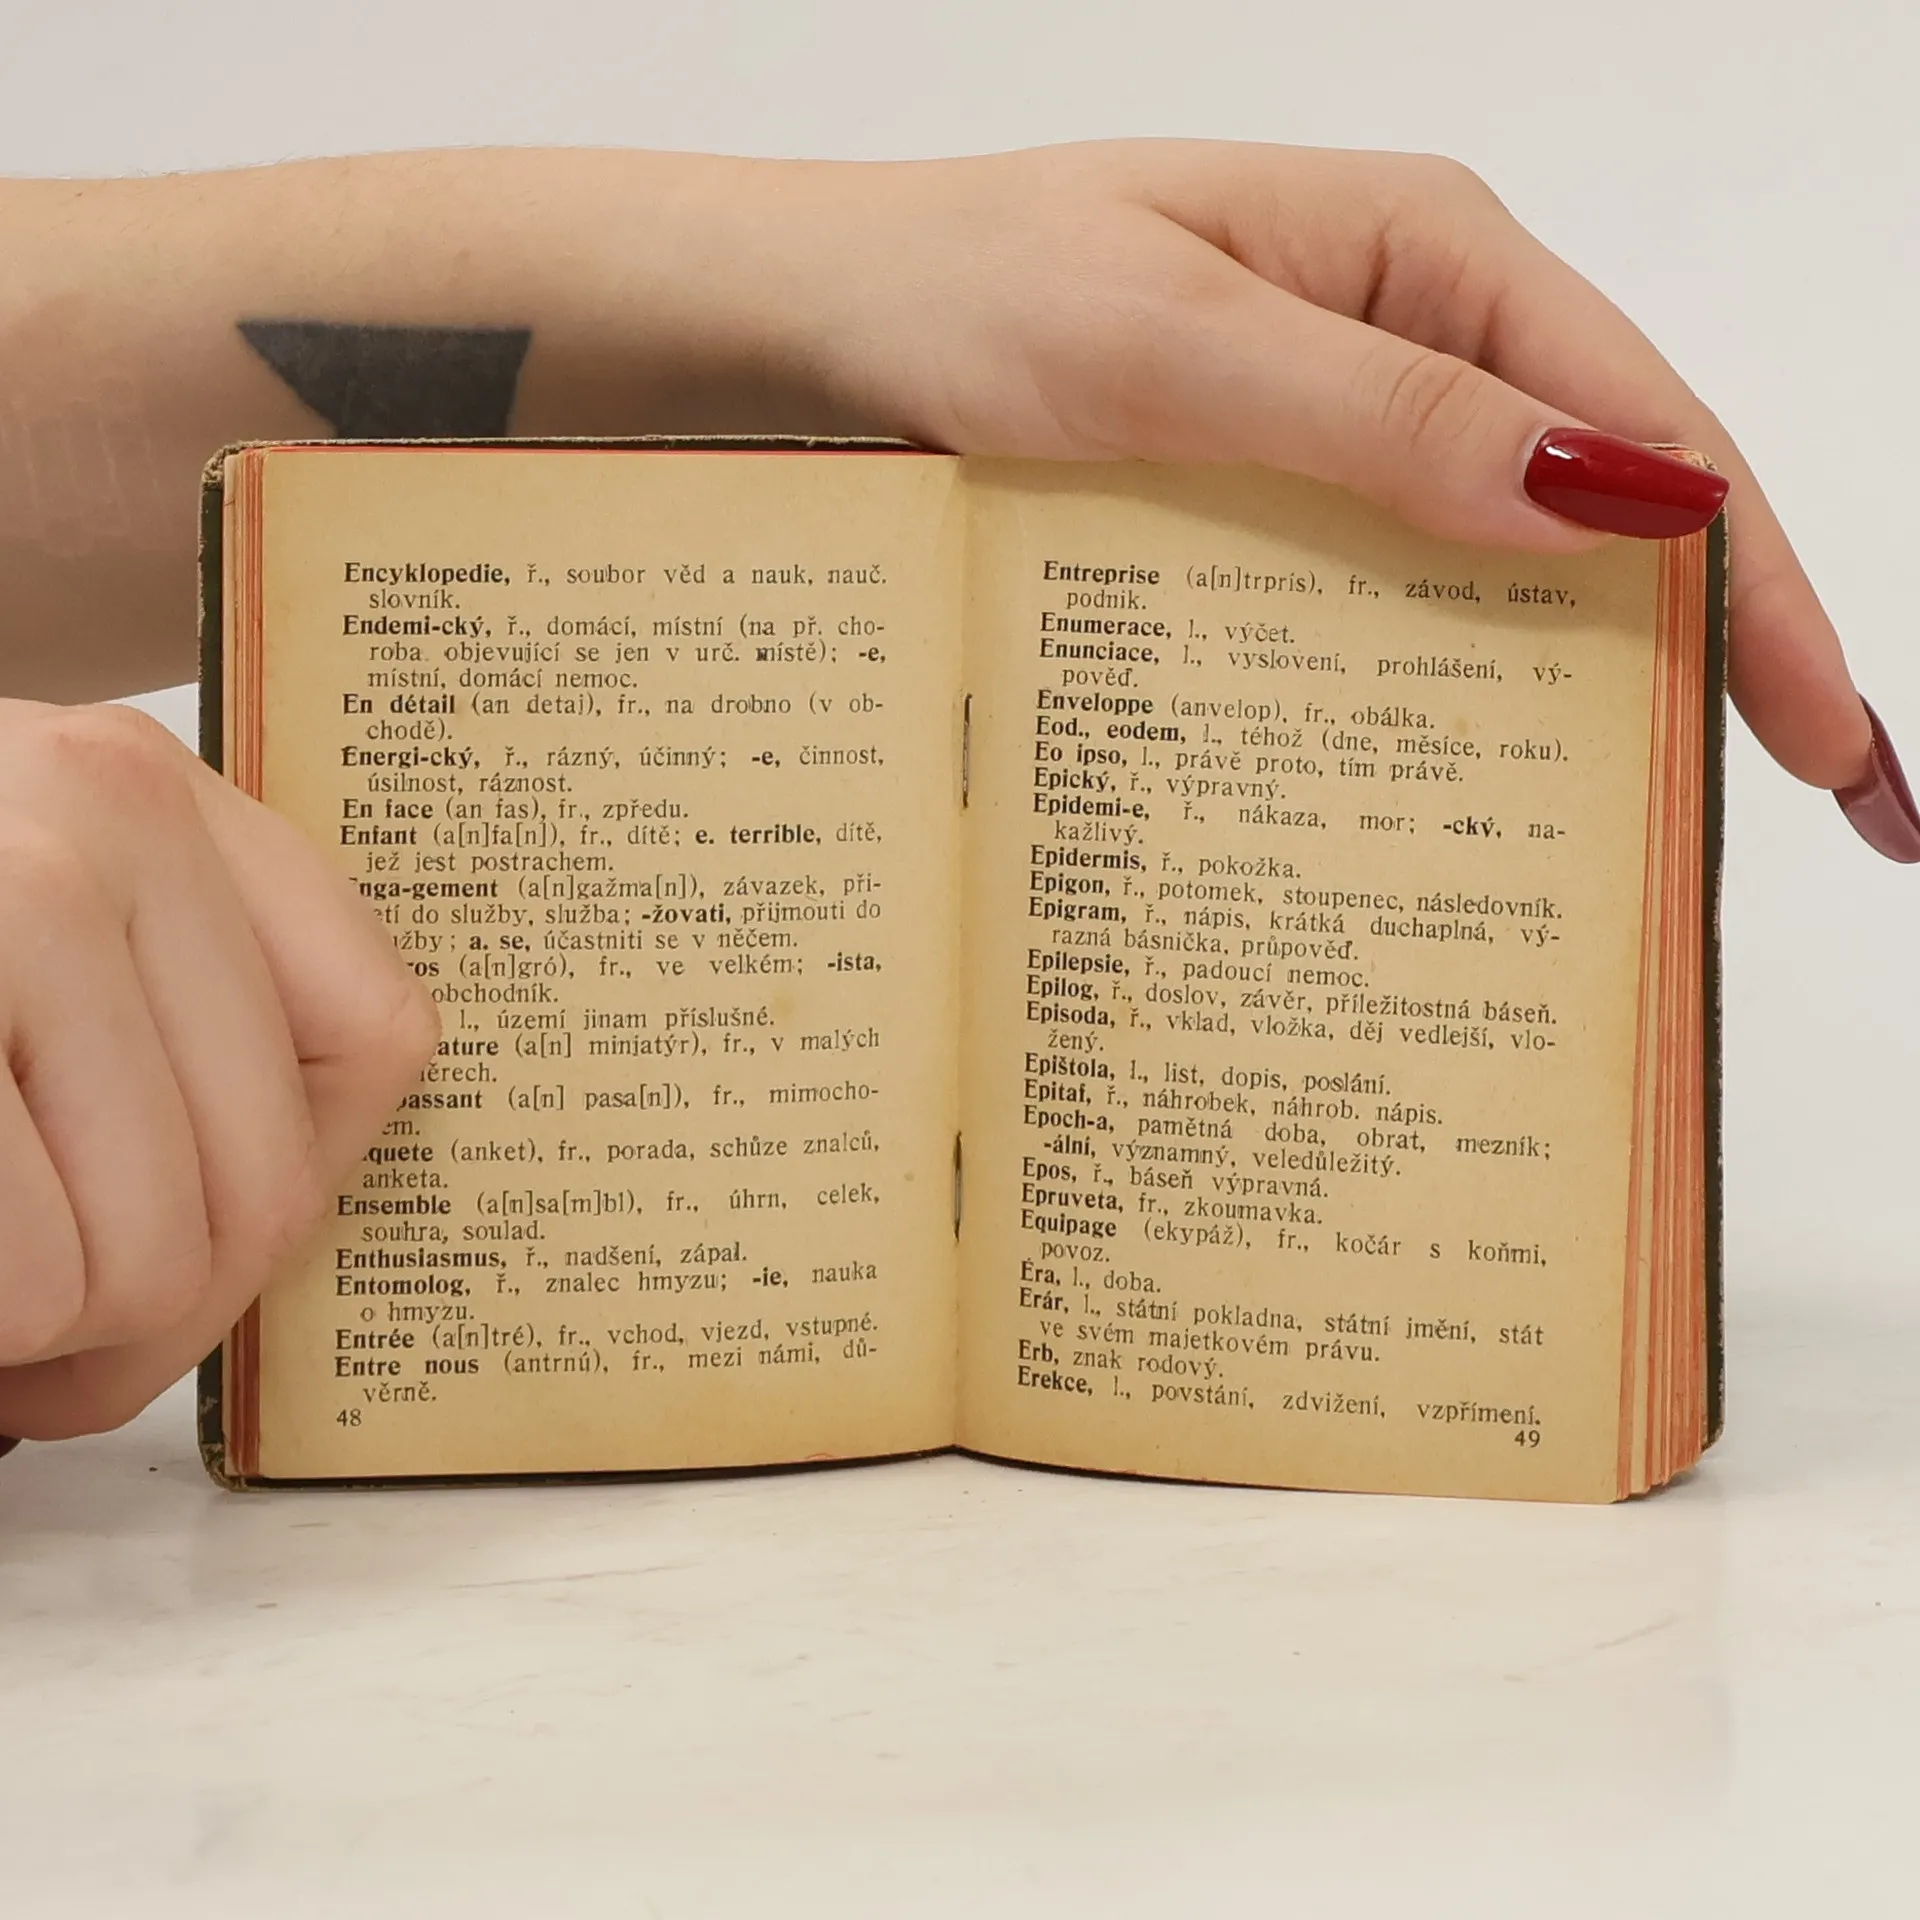 Encyklopedie, ř., soubor věd a nauk, nauč.
slovník.
Endemi-cký, ř., domácí, místní (na př. cho-
roba objevující se jen v urč. místě); -e,
místní, domácí nemoc.
En détail (an detaj), fr., na drobno (v ob-
chodě).
Energi-cký, ř., rázný, účinný; -e, činnost,
úsilnost, ráznost.
En face (an fas), fr., zpředu.
Enfant (a[n]fa[n]), fr., dítě; e. terrible, dítě,
jež jest postrachem.
(a[n]gažma[n]), závazek, při-
do služby, služba; -žovati, přijmouti do
a. se, účastniti se v něčem.
(a[n]gró), fr., ve velkém; -ista,
obchodník.
l., území jinam příslušné.
(a[n] minjatýr), fr., v malých
(a[n] pasa[n]), fr., mimocho-
(anket), fr., porada, schůze znalců,
anketa.
Ensemble (a[n]sa[m]bl), fr., úhrn, celek,
souhra, soulad.
Enthusiasmus, ř., nadšení, zápal.
Entomolog, ř., znalec hmyzu; -ie, nauka
o hmyzu.
Entrée (a[n]tré), fr., vchod, vjezd, vstupné.
Entre nous (antrnú), fr., mezi námi, dů-
věrně.
48
Entreprise (a[n]trprís), fr., závod, ústav,
podnik.
Enumerace, l., výčet.
Enunciace, l., vyslovení, prohlášení, vý-
pověď.
Enveloppe (anvelop), fr., obálka.
Eod., eodem, l., téhož (dne, měsíce, roku).
Eo ipso, l., právě proto, tím právě.
Epický, ř., výpravný.
Epidemi-e, ř., nákaza, mor; -cký, na-
kažlivý.
Epidermis, ř., pokožka.
Epigon, ř., potomek, stoupenec, následovník.
Epigram, ř., nápis, krátká duchaplná, vý-
razná básnička, průpověď.
Epilepsie, ř., padoucí nemoc.
Epilog, ř., doslov, závěr, příležitostná báseň.
Episoda, ř., vklad, vložka, děj vedlejší, vlo-
žený.
Epištola, l., list, dopis, poslání.
Epitaf, ř., náhrobek, náhrob. nápis.
Epoch-a, pamětná doba, obrat, mezník;
-ální, významný, veledůležitý.
Epos, ř., báseň výpravná.
Epruveta, fr., zkoumavka.
Equipage (ekypáž), fr., kočár s koňmi,
povoz.
Éra, l., doba.
Erár, l., státní pokladna, státní jmění, stát
ve svém majetkovém právu.
Erb, znak rodový.
Erekce, l., povstání, zdvižení, vzpřímení.
49